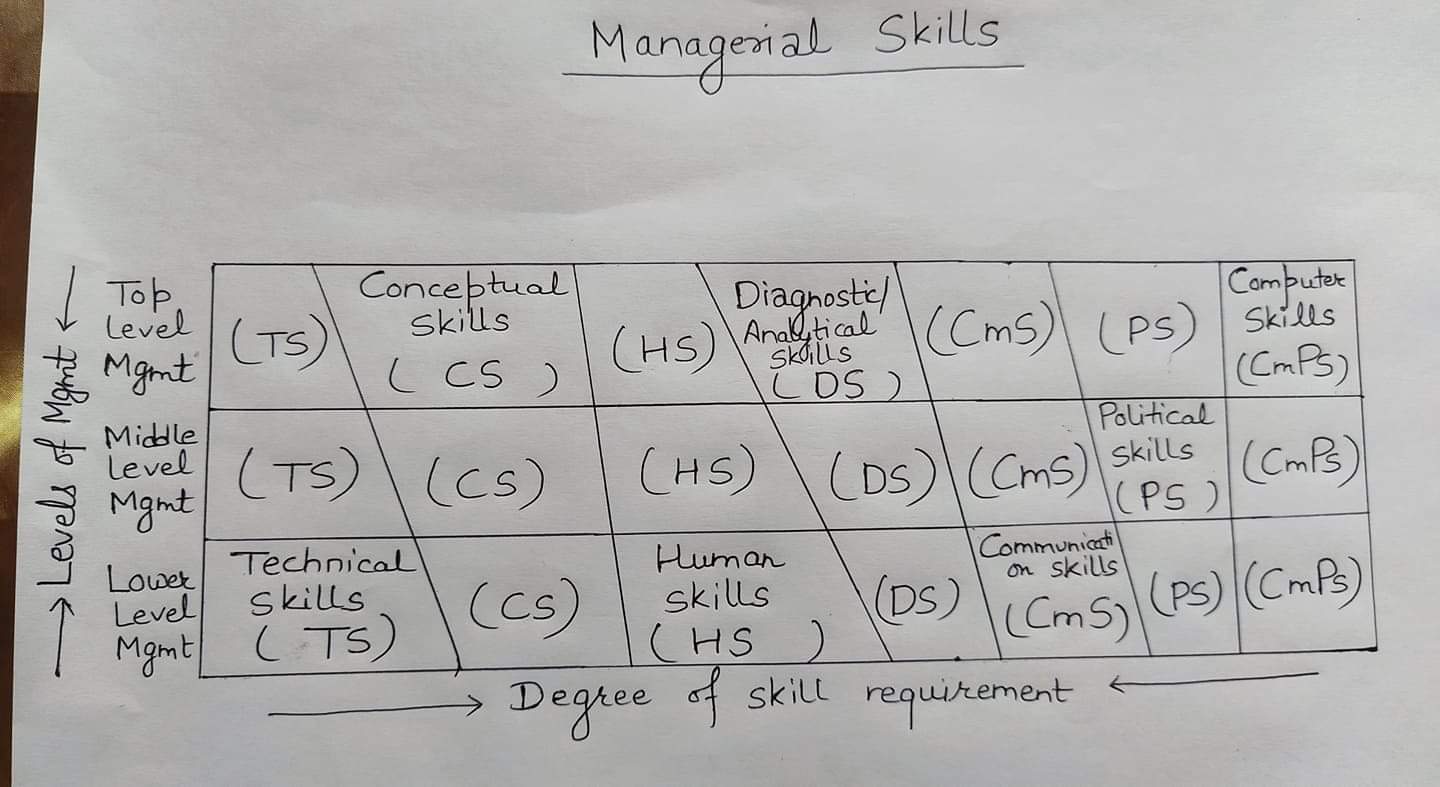 Managerial Skills
Levels of Mgmt
Top
Level
Mgmt
(TS)
Conceptual
Skills
( CS )
(HS)
Diagnostic/
Analytical
Skills
(DS)
(CmS)
(PS)
Computer
Skills
(CmPS)
Middle
Level
Mgmt
(TS)
(CS)
(HS)
(DS)
(CmS)
Political
Skills
(PS )
(CmPs)
Lower
Level
Mgmt
Technical
Skills
( TS)
(CS)
Human
Skills
(HS )
(DS)
Communicati
on skills
(CmS)
(PS)
(CmPs)
Degree of skill requirement